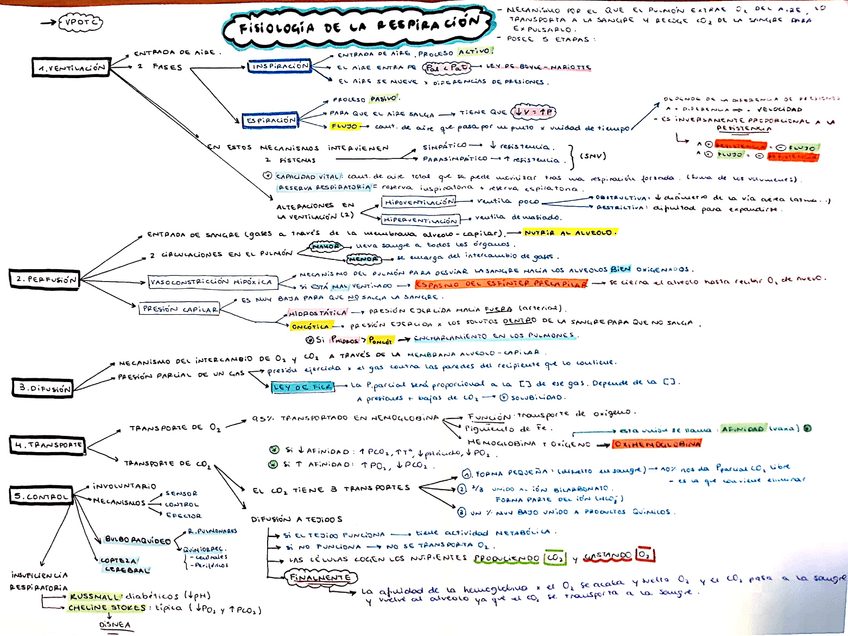 → VPDTC
FISIOLOGÍA DE LA RESPIRACIÓN
- MECANISMO POR EL QUE EL PULMÓN EXTRAE O₂ DEL AIRE, LO
TRANSPORTA A LA SANGRE Y RECOGE CO₂ DE LA SANGRE PARA
EXPULSARLO.
- POSEE 5 ETAPAS:
1. VENTILACIÓN
ENTRADA DE AIRE.
2 FASES
INSPIRACIÓN
ENTRADA DE AIRE, PROCESO ACTIVO.
EL AIRE ENTRA PQ Pal < Pat → LEY DE BOYLE-MARIOTTE
EL AIRE SE MUEVE X DIFERENCIAS DE PRESIONES.
ESPIRACIÓN
PROCESO PASIVO.
PARA QUE EL AIRE SALGA → TIENE QUE ↓V = ↑P
FLUJO → cant. de aire que pasa por un punto x unidad de tiempo
DEPENDE DE LA DIFERENCIA DE PRESIONES
A + DIFERENCIA → + VELOCIDAD
- ES INVERSAMENTE PROPORCIONAL A LA
RESISTENCIA
A ⊕ RESISTENCIA = ⊖ FLUJO
A ⊕ FLUJO = ⊖ RESISTENCIA
EN ESTOS MECANISMOS INTERVIENEN
2 SISTEMAS
SIMPÁTICO → ↓ resistencia.
PARASIMPÁTICO → ↑ resistencia.
(SNV)
CAPACIDAD VITAL: cant. de aire total que se puede movilizar tras una respiración forzada. (Suma de los volúmenes).
RESERVA RESPIRATORIA = reserva inspiratoria + reserva espiratoria.
ALTERACIONES EN
LA VENTILACIÓN (2)
HIPOVENTILACIÓN → ventila poco
OBSTRUCTIVA: ↓ diámetro de la vía aérea
RESTRICTIVA: dificultad para expandirse.
HIPERVENTILACIÓN → ventila demasiado.
2. PERFUSIÓN
ENTRADA DE SANGRE (gases a través de la membrana alveolo-capilar). → NUTRIR AL ALVEOLO.
2 CIRCULACIONES EN EL PULMÓN
MAYOR → lleva sangre a todos los órganos.
MENOR → se encarga del intercambio de gases.
VASOCONSTRICCIÓN HIPÓXICA
MECANISMO DEL PULMÓN PARA DESVIAR LA SANGRE HACIA LOS ALVEOLOS BIEN OXIGENADOS.
SI ESTÁ MAL VENTILADO → ESPASMO DEL ESFÍNTER PRECAPILAR → se cierra el alveolo hasta recibir O₂ de nuevo.
PRESIÓN CAPILAR
ES MUY BAJA PARA QUE NO SALGA LA SANGRE.
HIDROSTÁTICA → PRESIÓN EJERCIDA HACIA FUERA (arterial).
ONCÓTICA → PRESIÓN EJERCIDA X LOS SOLUTOS DENTRO DE LA SANGRE PARA QUE NO SALGA.
SI PHIDROS > PONCÓT → ENCHARCAMIENTO EN LOS PULMONES.
3. DIFUSIÓN
MECANISMO DEL INTERCAMBIO DE O₂ Y CO₂ A TRAVÉS DE LA MEMBRANA ALVEOLO-CAPILAR.
PRESIÓN PARCIAL DE UN GAS → presión ejercida x el gas contra las paredes del recipiente que lo contiene.
LEY DE FICK → La P.parcial será proporcional a la [ ] de ese gas. Depende de la [ ].
A presiones + bajas de CO₂ → ⊕ SOLUBILIDAD.
4. TRANSPORTE
TRANSPORTE DE O₂
95% TRANSPORTADO EN HEMOGLOBINA
FUNCIÓN: transporte de oxígeno.
Pigmento de Fe.
HEMOGLOBINA + OXÍGENO → OXIHEMOGLOBINA
esta unión se llama: AFINIDAD (varía)
SI ↓ AFINIDAD: ↑ PCO₂, ↑T°, ↓ PO₂
SI ↑ AFINIDAD: ↑ PO₂, ↓ PCO₂.
TRANSPORTE DE CO₂
EL CO₂ TIENE 3 TRANSPORTES
1. FORMA PEQUEÑA: (disuelto en sangre) → nos da P.parcial CO₂ libre
- es la que conviene eliminar
2. 2/3 UNIDO AL IÓN BICARBONATO.
FORMA PARTE DEL IÓN (HCO₃⁻)
3. UN % MUY BAJO UNIDO A PRODUCTOS QUÍMICOS.
DIFUSIÓN A TEJIDOS
SI EL TEJIDO FUNCIONA → tiene actividad METABÓLICA.
SI NO FUNCIONA → NO SE TRANSPORTA O₂.
LAS CÉLULAS COGEN LOS NUTRIENTES PRODUCIENDO CO₂ y GASTANDO O₂
FINALMENTE
La afinidad de la hemoglobina x el O₂ se acaba y suelta O₂ y el CO₂ pasa a la sangre
y vuelve al alveolo ya que el CO₂ se transporta a la sangre.
5. CONTROL
INVOLUNTARIO
MECANISMOS
SENSOR
CONTROL
EFECTOR
BULBO RAQUÍDEO
R. PULMONARES
QUIMIOREC.
- centrales
- Periféricos
CORTEZA
CEREBRAL
INSUFICIENCIA
RESPIRATORIA
KUSSMALL: diabéticos (↓pH)
CHEYNE STOKES: típica (↓PO₂ y ↑PCO₂)
DISNEA